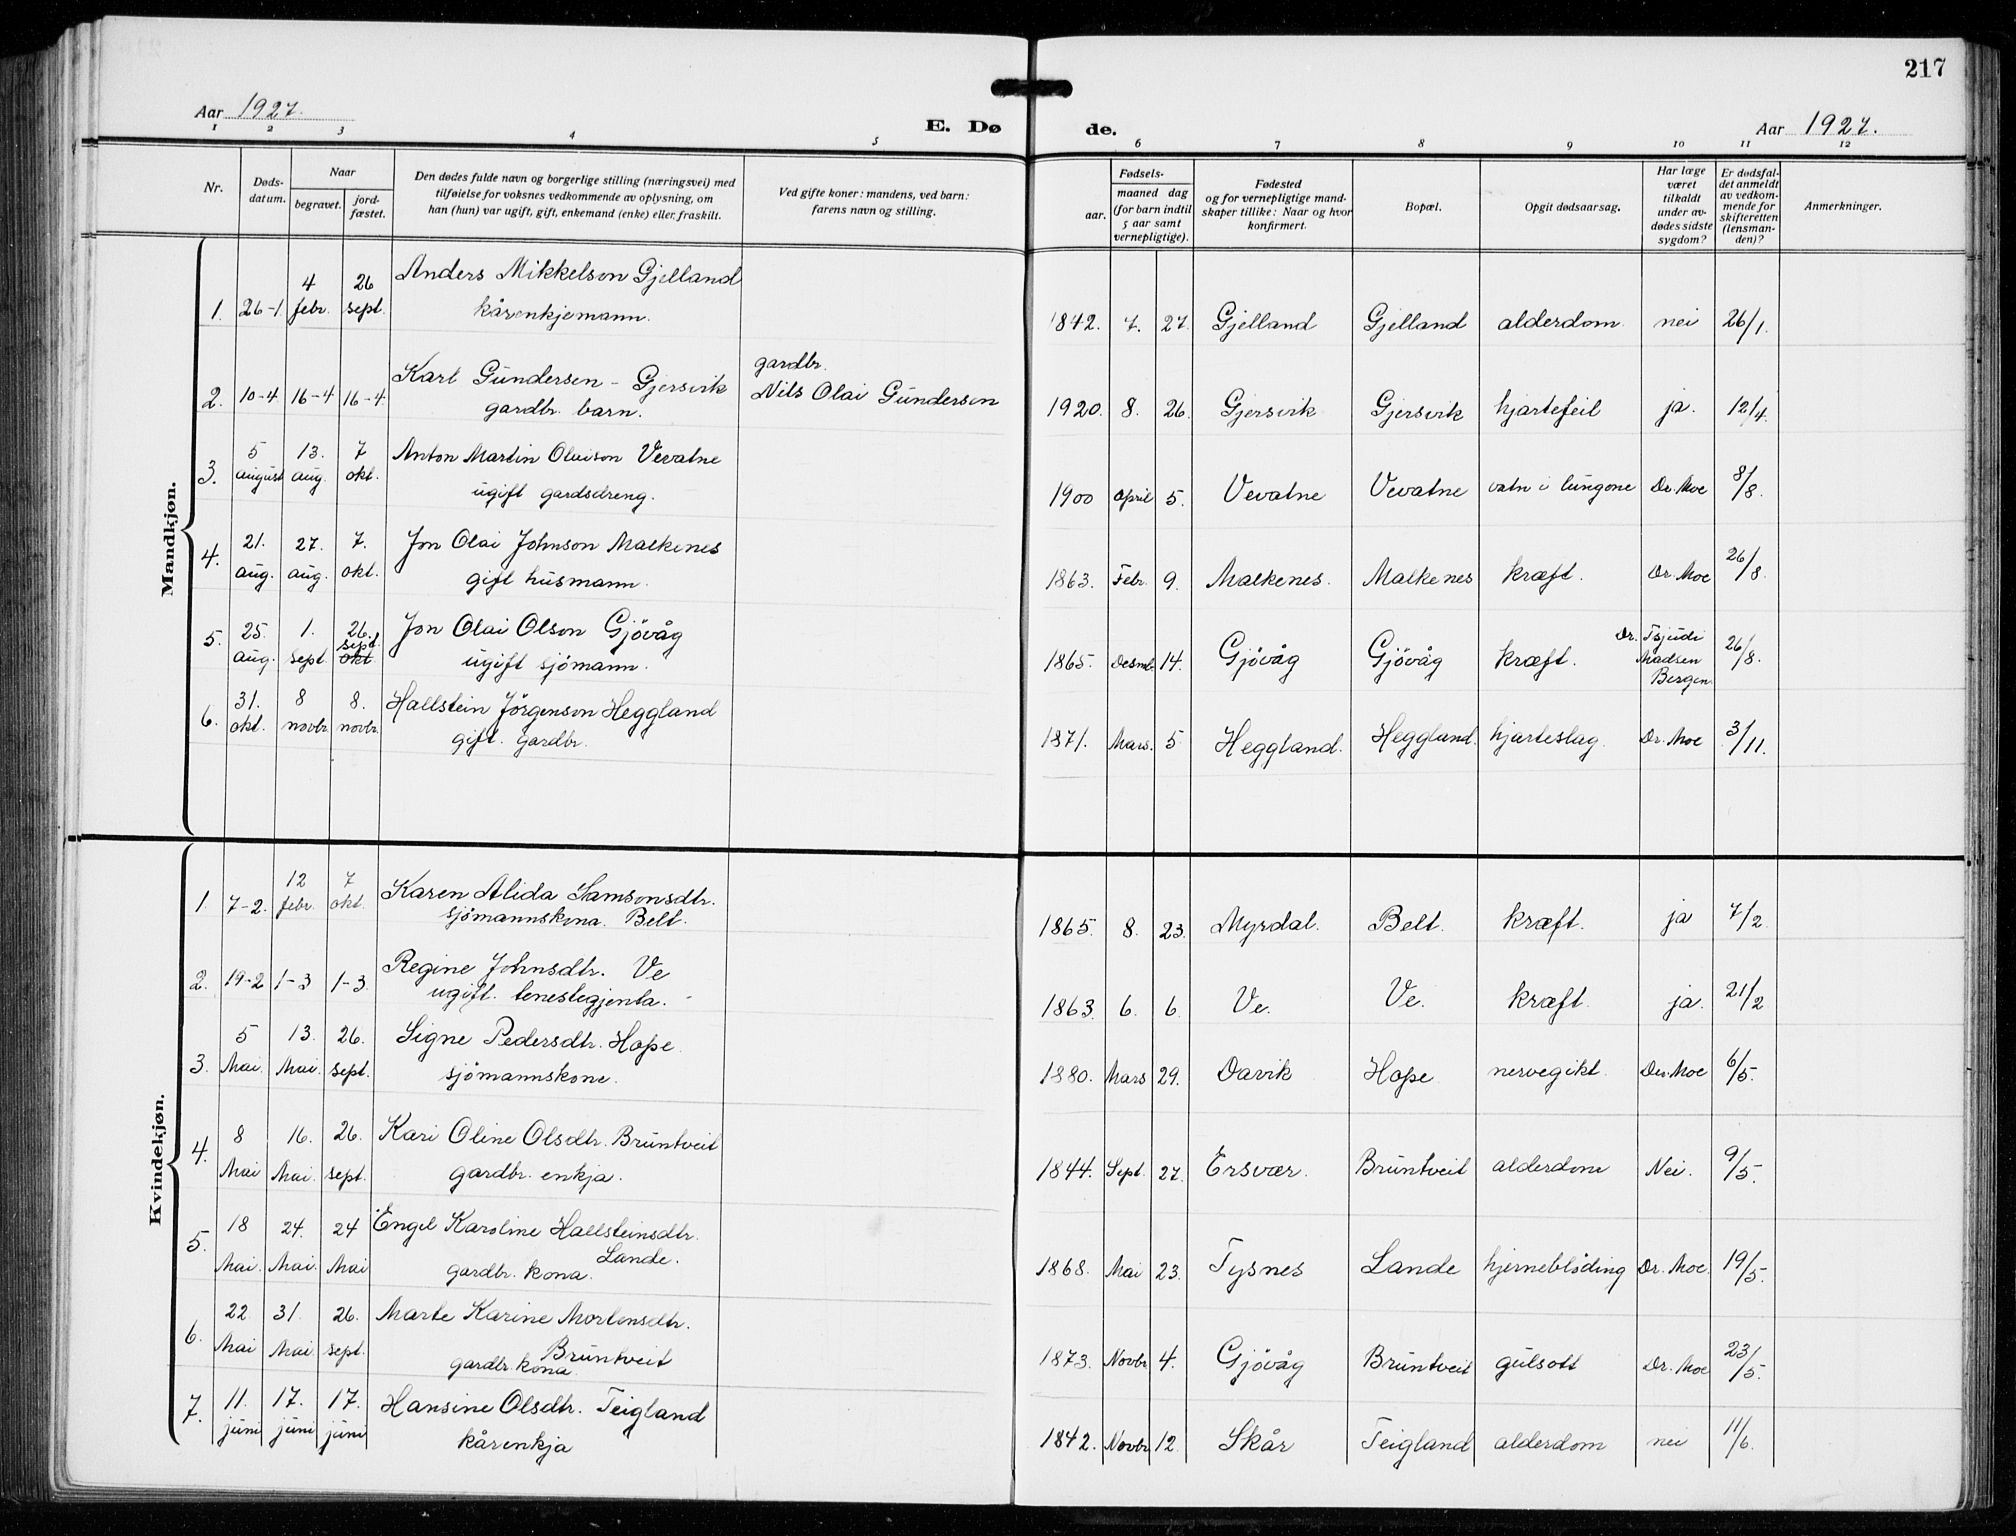 217
Aar 1927.
E. Dø de.
Aar 1927.
1 2 3 4 5 6 7 8 9 10 11 12
Nr.
Døds-
datum.
Naar
begravet.
jord-
fæstet.
Den dødes fulde navn og borgerlige stilling (næringsvei) med
tilføielse for voksnes vedkommende av oplysning, om
han (hun) var ugift, gift, enkemand (enke) eller fraskilt.
Ved gifte koner: mandens, ved barn:
farens navn og stilling.
Fødsels-
aar.
maaned dag
(for barn indtil
5 aar samt
vernepligtige).
Fødested
og for vernepligtige mand-
skaper tillike: Naar og hvor
konfirmert.
Bopæl.
Opgit dødsaarsag.
Har læge
været
tilkaldt
under av-
dødes sidste
sygdom?
Er dødsfal-
det anmeldt
av vedkom-
mende for
skifteretten
(lensman-
den)?
Anmerkninger.
Mandkjøn.
4 26 Anders Mikkelson Gjelland
1. 26-1 febr. sept. kårenkjemann. 1842. 7. 27. Gjelland Gjelland alderdom nei 26/1.
gardbr.
Karl Gundersen - Gjersvik
2. 10-4 16-4 16-4 gardbr. barn. Nils Olai Gundersen 1920. 8. 26. Gjersvik Gjersvik hjartefeil ja. 12/4.
5 13. 7 Anton Martin Olaison Vevatne
3. august aug. okt. ugift gardsdreng. 1900 april 5. Vevatne Vevatne vatn i lungone Dr. Moe 8/8.
21. 27. 7. Jon Olai Johnson Malkenes
4. aug. aug. okt. gift husmann. 1863. Febr. 9. Malkenes. Malkenes kræft. Dr. Moe 26/8.
25. 1. 26. Jon Olai Olson Gjövåg
sept.
5. aug. sept okt ugift sjömann. 1865. Desmb. 14. Gjövåg Gjövåg kræft. Dr. Tsjudi
Madsen
Bergen. 26/8.
31. 8 8. Hallstein Jörgenson Heggland
6. okt. novbr. novbr. gift. gardbr. 1871. Mars. 5 Heggland. Heggland. hjarteslag. Dr. Moe 3/11.
Kvindekjøn.
12 7 Karen Alida Samsonsdtr.
1. 7-2. febr. okt. sjömannskona. Belt. 1865. 8. 23. Myrdal. Belt. kræft. ja 7/2.
Regine Johnsdtr. Ve
2. 19-2 1-3 1-3. ugift. tenestegjenta. 1863. 6. 6. Ve. Ve. kræft. ja. 21/2
5 13. 26. Signe Pedersdtr. Hope
3. Mai. Mai. sept. sjömannskone. 1880. Mars 29. Davik Hope nervegikt. Dr. Moe 6/5.
8 16. 26. Kari Oline Olsdtr. Bruntveit
4. Mai Mai. sept. gardbr. enkja. 1844. Sept. 27. Ersvær. Bruntveit alderdom Nei. 9/5.
18 24. 24 Engel Karoline Hallsteinsdtr.
Lande.
5. Mai. Mai. Mai gardbr. kona. 1868. Mai 23. Tysnes Lande hjerneblöding Dr. Moe. 19/5.
22 31. 26. Marte Karine Mortensdtr.
Bruntveit
6. Mai Mai. sept. gardbr. kona. 1873. Novbr 4. Gjövåg Bruntveit gulsott Dr. Moe 23/5.
11. 17. 17. Hansine Olsdtr. Teigland
7. juni juni juni kårenkja 1842. Novbr. 12. Skår Teigland alderdom nei 11/6.